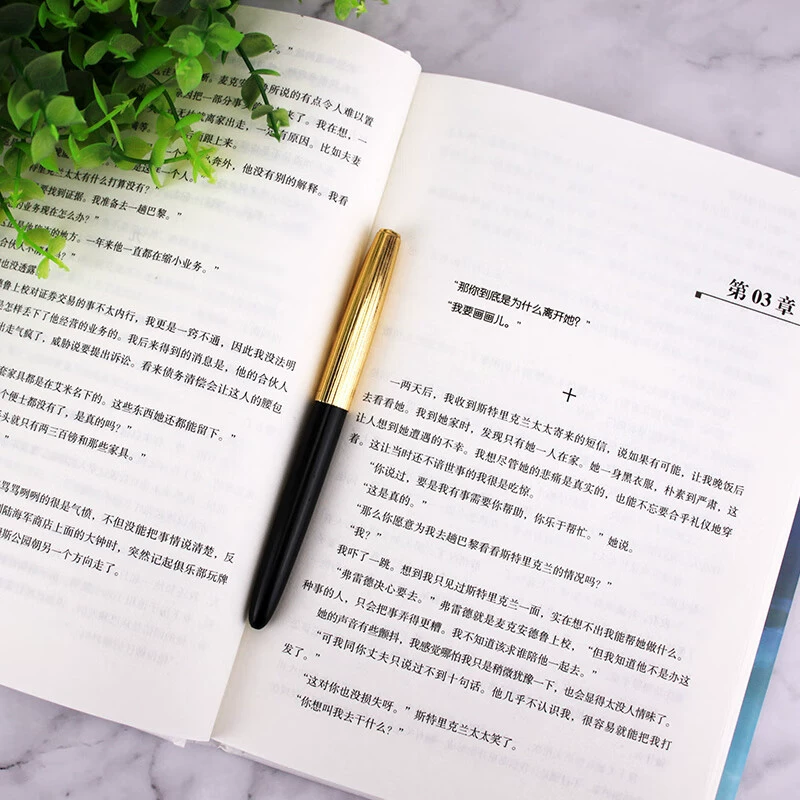 所说的有点令人难以置
我在想，一
有原因。比如夫妻
跟上来。
奔外，他没有别的解释。我看
里克兰太太有什么打算没有？”
找到证据。我准备去一趟巴黎。”
业务现在怎么办？”
的地方。一年来他一直都在缩小业务。”
也没透露
德鲁上校对证券交易的事不太内行，我更是一窍不通，因此我没法明
是怎样丢下了他经营的业务的。我后来得到的消息是，他的合伙人
出走气疯了，威胁说要提出诉讼。看来债务清偿会让这人的腰包
套家具都是在艾米名下的。这些东西她还都能留下。”
个便士都没有了，是真的吗？”
头就只有两三百镑和那些家具。”
骂骂咧咧的很是气愤，不但没能把事情说清楚，反
陆海军商店上面的大钟时，突然记起俱乐部玩牌
斯公园朝另一个方向走了。
第 03 章
“那你到底是为什么离开她？”
“我要画画儿。”
十
一两天后，我收到斯特里克兰太太寄来的短信，说如果有可能，让我晚饭后
去看看她。我到她家时，发现只有她一人在家。她一身黑衣服，朴素到严肃，这
让人想到她遭遇的不幸。我想尽管她的悲痛是真实的，也能不忘要合乎礼仪地穿
着。这让当时还不谙世事的我很是吃惊。
“你说过，要是我有事需要你帮助，你乐于帮忙。”她说。
“这是真的。”
“那么你愿意为我去趟巴黎看看斯特里克兰的情况吗？”
“我？”
我吓了一跳。想到我只见过斯特里克兰一面，实在想不出我能帮她做什么。
“弗雷德决心要去。”弗雷德就是麦克安德鲁上校，“但我知道他不是办这
种事的人，只会把事弄得更糟。我不知道该求谁陪他一起去。”
她的声音有些颤抖，我感觉哪怕我只是稍微犹豫一下，也会显得太没人情味了。
“可我同你丈夫只说过不到十句话。他几乎不认识我，很容易就能把我打
发了。”
“这对你也没损失呀。”斯特里克兰太太笑了。
“你想叫我去干什么？”